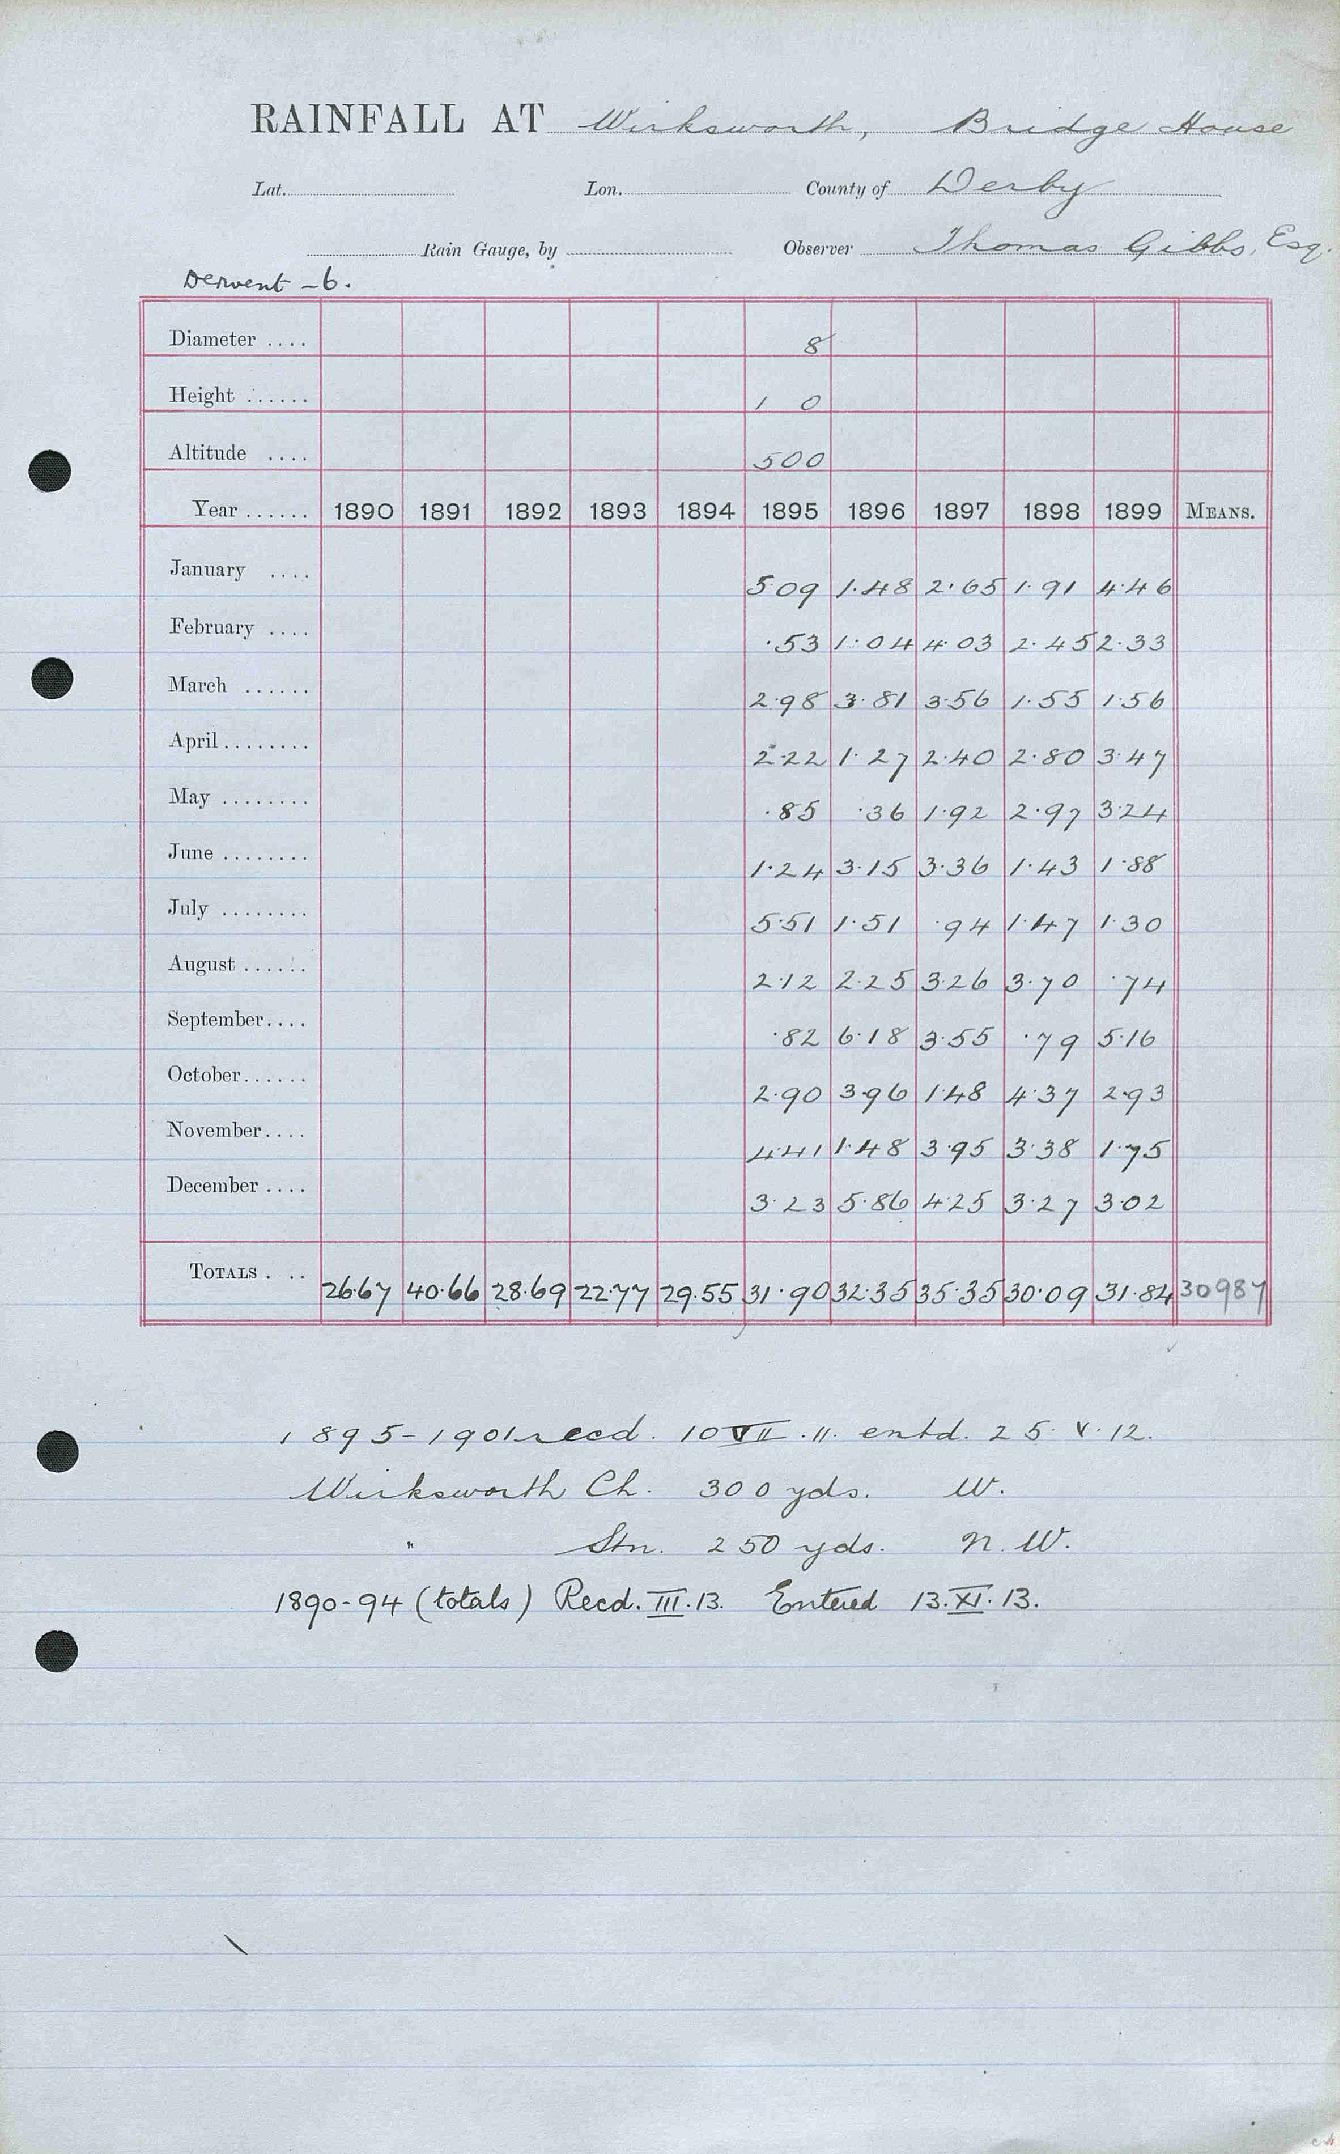 RAINFALL AT Wirksworth, Bridge House
Lat. Lon. County of Derby
Rain Gauge, by Observer Thomas Gibbs, Esq.
Derwent -6.
Diameter .... 8
Height ...... 1 0
Altitude .... 500
Year ...... 1890 1891 1892 1893 1894 1895 1896 1897 1898 1899 MEANS.
January .... 5.09 1.48 2.65 1.91 4.46
February .... .53 1.04 4.03 2.45 2.33
March ...... 2.98 3.81 3.56 1.55 1.56
April ........ 2.22 1.27 2.40 2.80 3.47
May ........ .85 .36 1.92 2.97 3.24
June ........ 1.24 3.15 3.36 1.43 1.88
July ........ 5.51 1.51 .94 1.47 1.30
August ...... 2.12 2.25 3.26 3.70 .74
September .... .82 6.18 3.55 .79 5.16
October ...... 2.90 3.96 1.48 4.37 2.93
November .... 4.41 1.48 3.95 3.38 1.75
December .... 3.23 5.86 4.25 3.27 3.02
TOTALS . .. 26.67 40.66 28.69 22.77 29.55 31.90 32.35 35.35 30.09 31.84 30987
1895-1901 recd. 10 VII .11. entd. 25. V. 12.
Wirksworth Ch. 300 yds. W.
" Stn. 250 yds. N.W.
1890-94 (totals) Recd. III.13. Entered 13.XI.13.